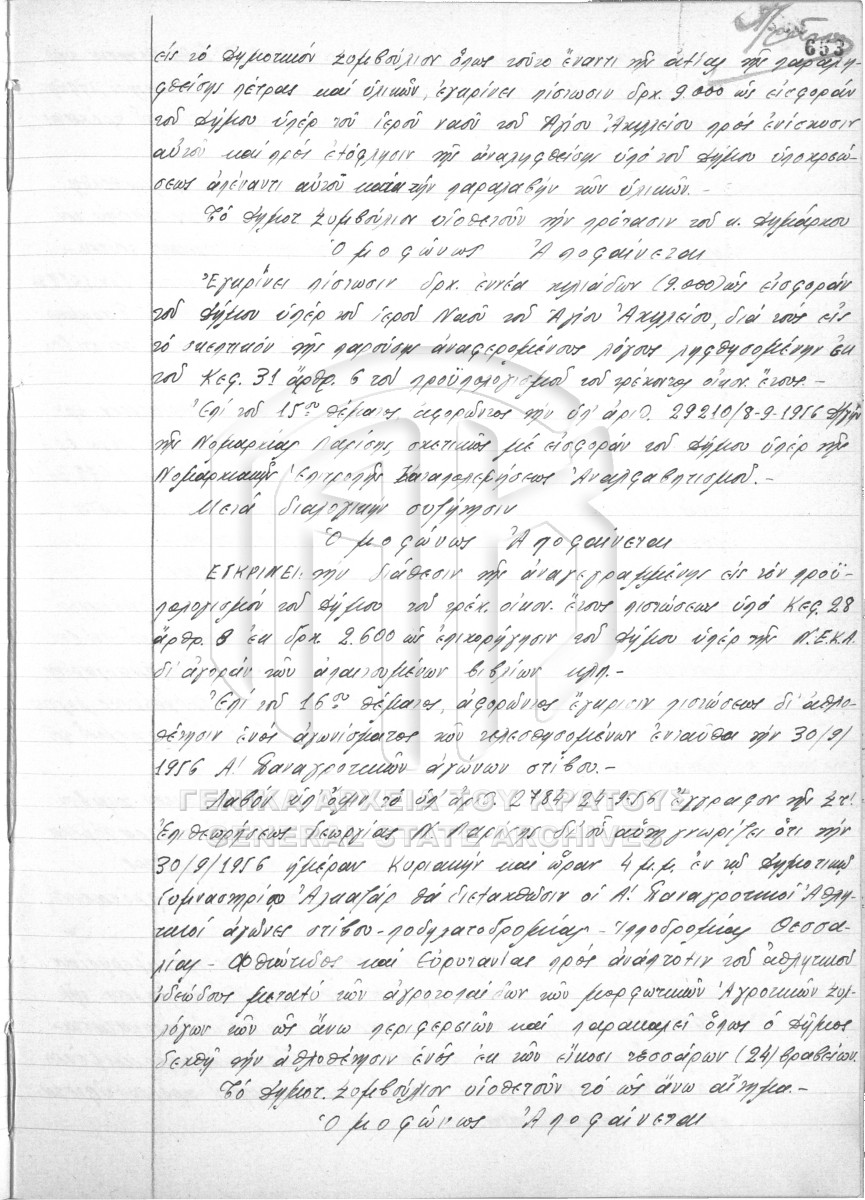 653
εἰς τό Δημοτικόν Συμβούλιον ὅπως τοῦτο ἔναντι τῆς ἀξίας τῆς παραλη-
φθείσης πέτρας καί ὑλικῶν, ἐγκρίνει πίστωσιν δρχ. 9.000 ὡς εἰσφοράν
τοῦ Δήμου ὑπέρ τοῦ ἱεροῦ ναοῦ τοῦ Ἁγίου Ἀχιλλείου πρός ἐνίσχυσιν
αὐτοῦ καί πρός ἐξόφλησιν τῆς ἀναληφθείσης ὑπό τοῦ Δήμου ὑποχρεώ-
σεως ἀπέναντι αὐτοῦ κατά τήν παραλαβήν τῶν ὑλικῶν.-
Τό Δημοτ. Συμβούλιον υἱοθετοῦν τήν πρότασιν τοῦ κ. Δημάρχου
Ὁμοφώνως Ἀποφαίνεται
Ἐγκρίνει πίστωσιν δρχ. ἐννέα χιλιάδων (9.000) ὡς εἰσφοράν
τοῦ Δήμου ὑπέρ τοῦ ἱεροῦ Ναοῦ τοῦ Ἁγίου Ἀχιλλείου, διά τούς εἰς
τό σκεπτικόν τῆς παρούσης ἀναφερομένους λόγους ληφθησομένην ἐκ
τοῦ Κεφ. 31 ἄρθρ. 6 τοῦ προϋπολογισμοῦ τοῦ τρέχοντος οἰκον. ἔτους.-
Ἐπί τοῦ 15ου θέματος ἀφορῶντος τήν ὑπ' ἀριθ. 29210/8-9-1956 Δ/γήν
τῆς Νομαρχίας Λαρίσης σχετικῶς μέ εἰσφοράν τοῦ Δήμου ὑπέρ τῆς
Νομαρχιακῆς Ἐπιτροπῆς Καταπολεμήσεως Ἀναλφαβητισμοῦ.-
Μετά διαλογικήν συζήτησιν
Ὁμοφώνως Ἀποφαίνεται
ΕΓΚΡΙΝΕΙ: τήν διάθεσιν τῆς ἀναγεγραμμένης εἰς τόν προϋ-
πολογισμόν τοῦ Δήμου τοῦ τρέχ. οἰκον. ἔτους πιστώσεως ὑπό Κεφ. 28
ἄρθρ. 8 ἐκ δρχ. 2.600 ὡς ἐπιχορήγησιν τοῦ Δήμου ὑπέρ τῆς Ν.Ε.Κ.Α.
δι' ἀγοράν τῶν ἀπαιτουμένων βιβλίων κλπ.-
Ἐπί τοῦ 16ου θέματος, ἀφορῶντος ἔγκρισιν πιστώσεως δι' ἀθλο-
θέτησιν ἑνός ἀγωνίσματος τῶν τελεσθησομένων ἐνταῦθα τήν 30/9/
1956 Α! Παναγροτικῶν ἀγώνων στίβου.-
Λαβόν ὑπ' ὄψιν τό ὑπ' ἀρ. 2784/24-9-56 ἔγγραφον τῆς ΣΤ!
Ἐπιθεωρήσεως Γεωργίας Ν. Λαρίσης δι' οὗ αὕτη γνωρίζει ὅτι τήν
30/9/1956 ἡμέραν Κυριακήν καί ὥραν 4 μ.μ. ἐν τῷ Δημοτικῷ
Γυμναστηρίῳ Ἀλκαζάρ θά διεξαχθῶσιν οἱ Α! Παναγροτικοί Ἀθλη-
τικοί ἀγῶνες στίβου - ποδηλατοδρομίας - Ἱπποδρομίας Θεσσα-
λίας - Φθιώτιδος καί Εὐρυτανίας πρός ἀνάπτυξιν τοῦ ἀθλητικοῦ
ἰδεώδους μεταξύ τῶν ἀγροτοπαίδων τῶν μορφωτικῶν Ἀγροτικῶν Συλ-
λόγων τῶν ὡς ἄνω περιφερειῶν καί παρακαλεῖ ὅπως ὁ Δῆμος
δεχθῇ τήν ἀθλοθέτησιν ἑνός ἐκ τῶν εἴκοσι τεσσάρων (24) βραβείων.
Τό Δημοτ. Συμβούλιον υἱοθετοῦν τό ὡς ἄνω αἴτημα.-
Ὁμοφώνως Ἀποφαίνεται
ΓΕΝΙΚΑ ΑΡΧΕΙΑ ΤΟΥ ΚΡΑΤΟΥΣ
GENERAL STATE ARCHIVES